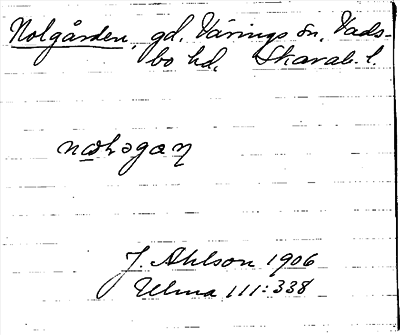 Nolgården, gd, Värings sn, Vads-
bo hd, Skarab. l.
J. Ahlson 1906
Ulma 111:338